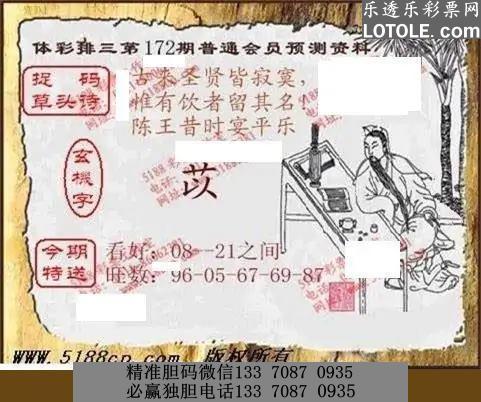 乐透乐彩票网
LOTOLE.COM
体彩排三第172期普通会员预测资料
捉码
草头诗
古来圣贤皆寂寞,
惟有饮者留其名,
陈王昔时宴平乐
玄機字
苡
今期
特送
看好:08--21之间
旺数:96-05-67-69-87
www.5188cp.com 版权所有
精准胆码微信133 7087 0935
必赢独胆电话133 7087 0935